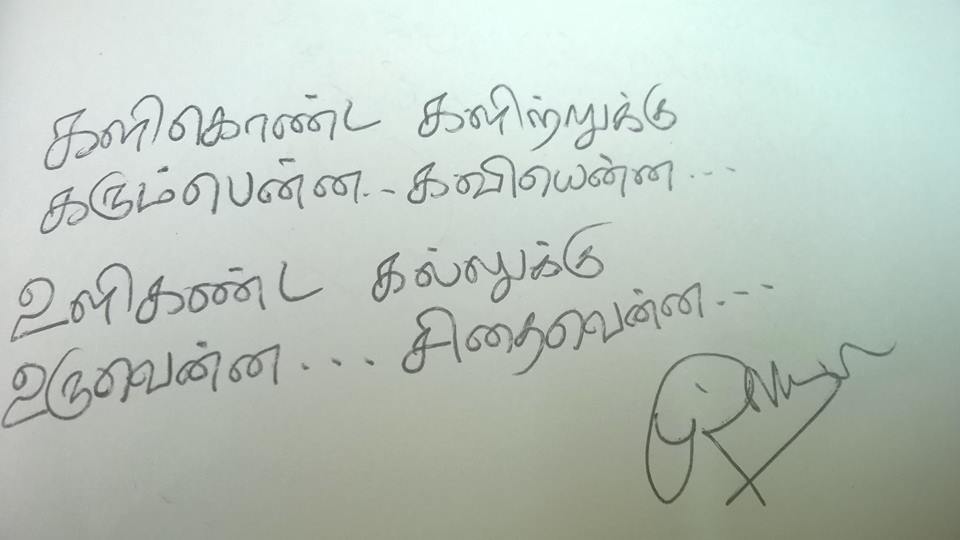 களிகொண்ட களிற்றுக்கு
கரும்பென்ன.. கவியென்ன...
உளிகண்ட கல்லுக்கு
உருவென்ன... சிதைவென்ன...